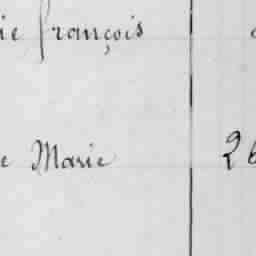 ie françois
e Marie 26